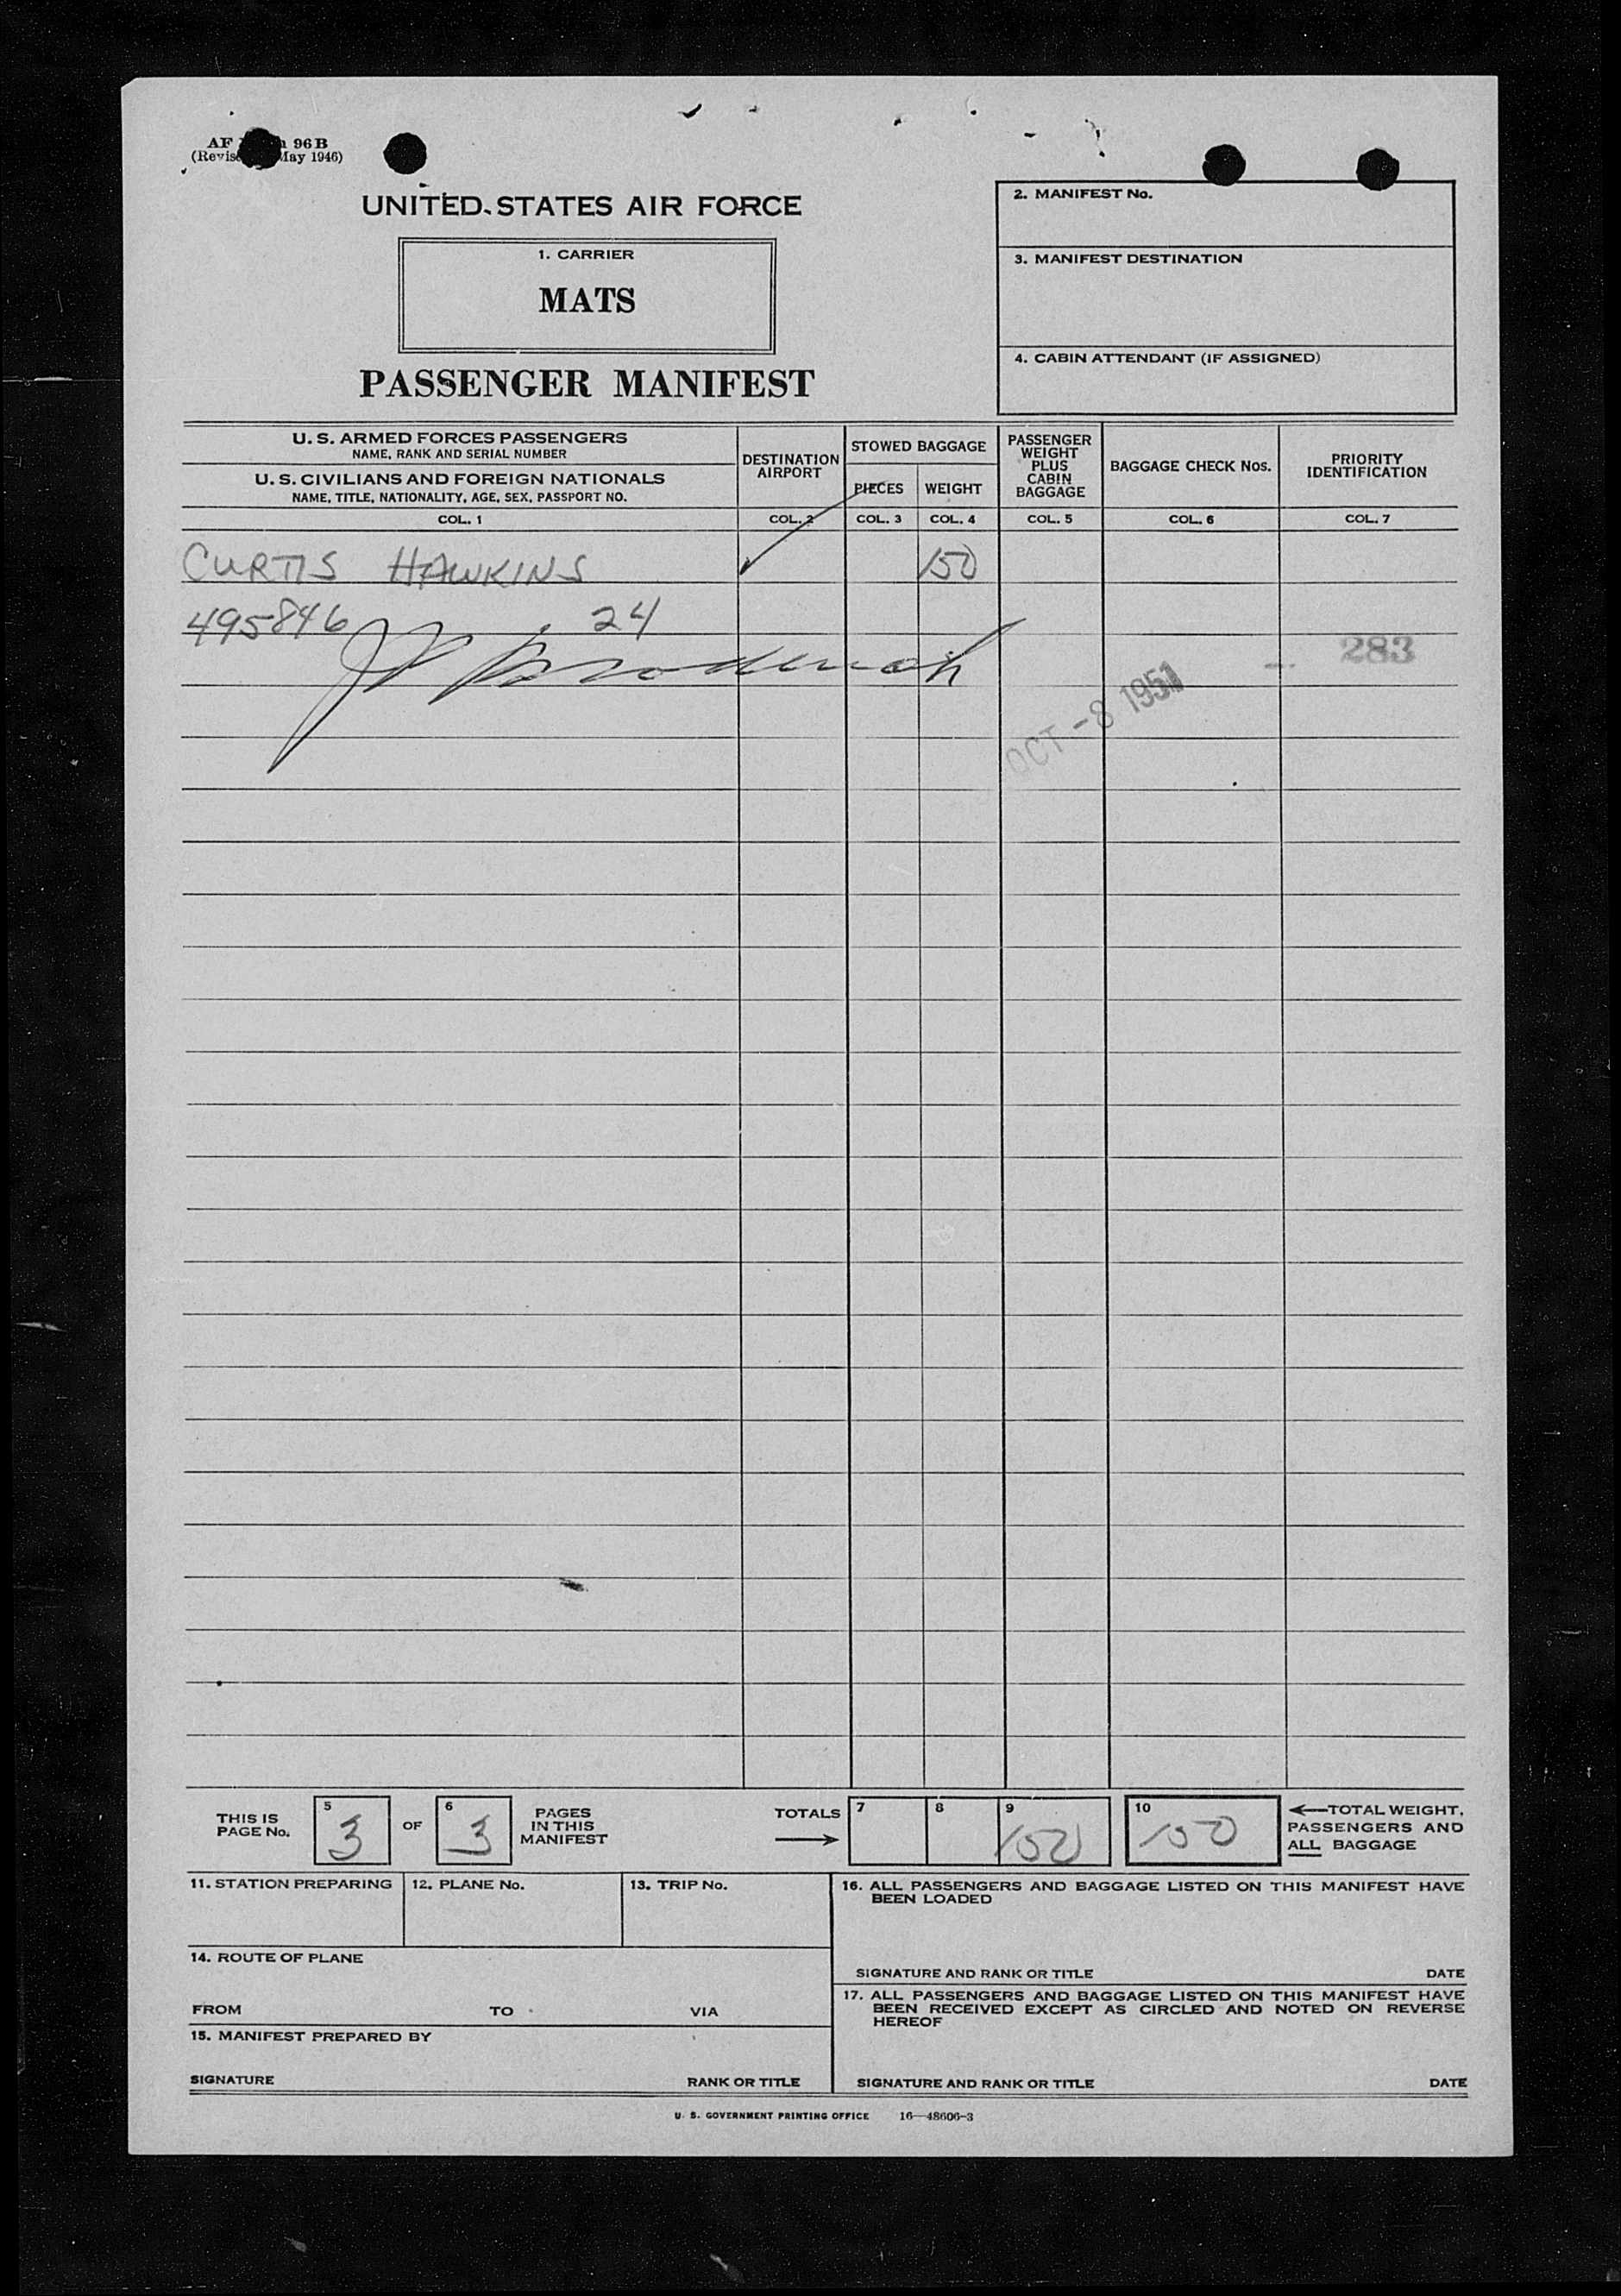 AF 96 B
(Revis May 1946)
UNITED STATES AIR FORCE
1. CARRIER
MATS
PASSENGER MANIFEST
2. MANIFEST No.
3. MANIFEST DESTINATION
4. CABIN ATTENDANT (IF ASSIGNED)
U. S. ARMED FORCES PASSENGERS
NAME, RANK AND SERIAL NUMBER
U. S. CIVILIANS AND FOREIGN NATIONALS
NAME, TITLE, NATIONALITY, AGE, SEX, PASSPORT NO.
DESTINATION
AIRPORT
STOWED BAGGAGE
PIECES WEIGHT
PASSENGER
WEIGHT
PLUS
CABIN
BAGGAGE
BAGGAGE CHECK Nos.
PRIORITY
IDENTIFICATION
COL. 1 COL. 2 COL. 3 COL. 4 COL. 5 COL. 6 COL. 7
CURTIS HAWKINS 150
495846 24
283
OCT -8 1951
THIS IS
PAGE No.
5
3
OF
6
3
PAGES
IN THIS
MANIFEST
TOTALS
7
8
9
150
10
150
TOTAL WEIGHT,
PASSENGERS AND
ALL BAGGAGE
11. STATION PREPARING
12. PLANE No.
13. TRIP No.
14. ROUTE OF PLANE
FROM TO VIA
15. MANIFEST PREPARED BY
SIGNATURE RANK OR TITLE
16. ALL PASSENGERS AND BAGGAGE LISTED ON THIS MANIFEST HAVE
BEEN LOADED
SIGNATURE AND RANK OR TITLE DATE
17. ALL PASSENGERS AND BAGGAGE LISTED ON THIS MANIFEST HAVE
BEEN RECEIVED EXCEPT AS CIRCLED AND NOTED ON REVERSE
HEREOF
SIGNATURE AND RANK OR TITLE DATE
U. S. GOVERNMENT PRINTING OFFICE 16—48606-3